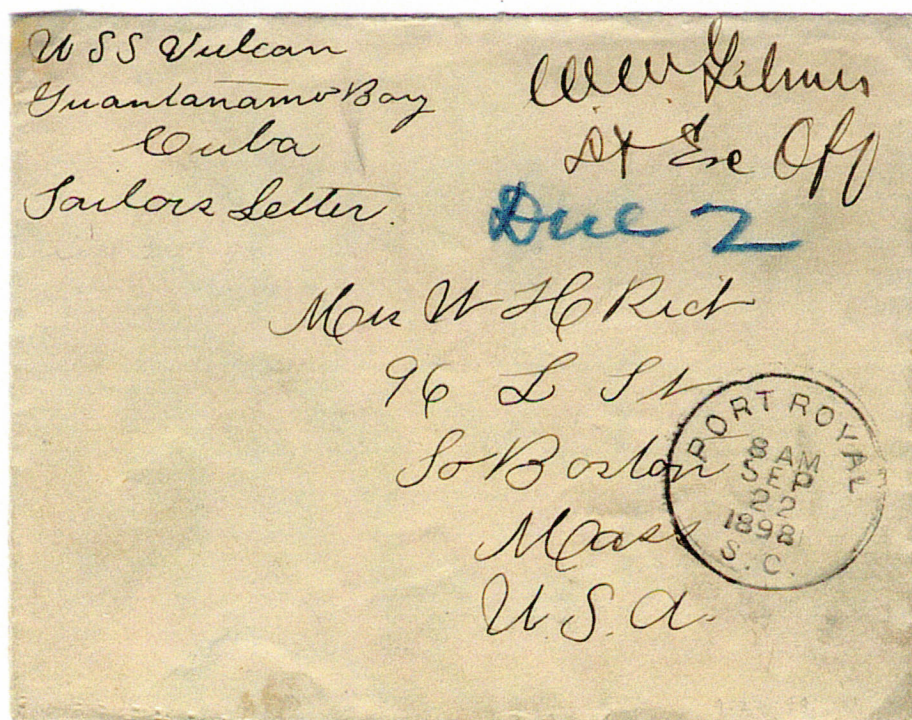 USS Vulcan
Guantanamo Bay
Cuba
Sailors Letter.
WW Gilmer
Lt Exe Off
Due 2
Mrs W H Rich
96 L St
So Boston
Mass
U.S.A.
PORT ROYAL
8 AM
SEP
22
1898
S.C.